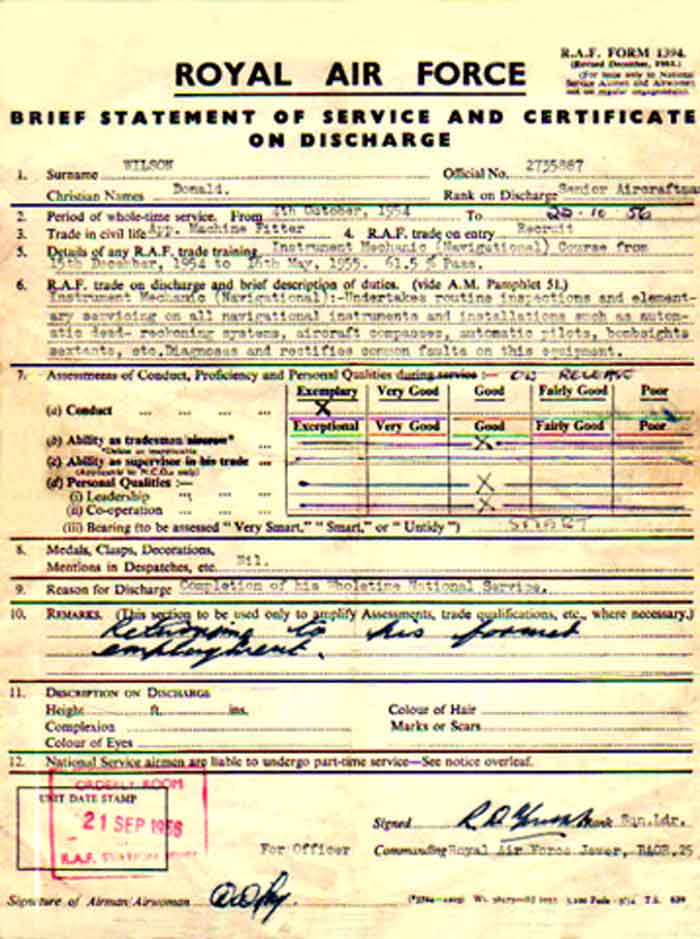 R.A.F. FORM 1394.
(Revised December, 1951.)
(For issue only to National
Service Airmen and Airwomen
not on regular engagements.)
ROYAL AIR FORCE
BRIEF STATEMENT OF SERVICE AND CERTIFICATE
ON DISCHARGE
1. Surname WILSON Official No. 2735887
Christian Names Donald. Rank on Discharge Senior Aircraftma
2. Period of whole-time service. From 4th October, 1954 To 20-10-56
3. Trade in civil life App. Machine Fitter 4. R.A.F. trade on entry Recruit
5. Details of any R.A.F. trade training Instrument Mechanic (Navigational) Course from
15th December, 1954 to 16th May, 1955. 61.5 % Pass.
6. R.A.F. trade on discharge and brief description of duties. (vide A.M. Pamphlet 51.)
Instrument Mechanic (Navigational):-Undertakes routine inspections and element-
ary servicing on all navigational instruments and installations such as autom-
atic dead- reckoning systems, aircraft compasses, automatic pilots, bombsights
sextants, etc.Diagnoses and rectifies common faults on this equipment.
7. Assessments of Conduct, Proficiency and Personal Qualities during service :— ON RELEASE
Exemplary Very Good Good Fairly Good Poor
(a) Conduct ... ... ... ... X
Exceptional Very Good Good Fairly Good Poor
(b) Ability as tradesman/aircrew* ... X
*Delete as inapplicable
(c) Ability as supervisor in his trade ...
(Applicable to N.C.Os. only)
(d) Personal Qualities :—
(i) Leadership ... ... ... X
(ii) Co-operation ... ... ... X
(iii) Bearing (to be assessed "Very Smart," "Smart," or "Untidy") SMART
8. Medals, Clasps, Decorations,
Mentions in Despatches, etc. Nil.
9. Reason for Discharge Completion of his Wholetime National Service.
10. REMARKS. (This section to be used only to amplify Assessments, trade qualifications, etc., where necessary.)
Returning to his former
employment.
11. DESCRIPTION ON DISCHARGE
Height ft. ins. Colour of Hair
Complexion Marks or Scars
Colour of Eyes
12. National Service airmen are liable to undergo part-time service—See notice overleaf.
ORDERLY ROOM
UNIT DATE STAMP
21 SEP 1956
R.A.F. STATION
Signed Rank Sqn.Ldr.
For Officer Commanding Royal Air Force Jever, BAOR.25
Signature of Airman/Airwoman